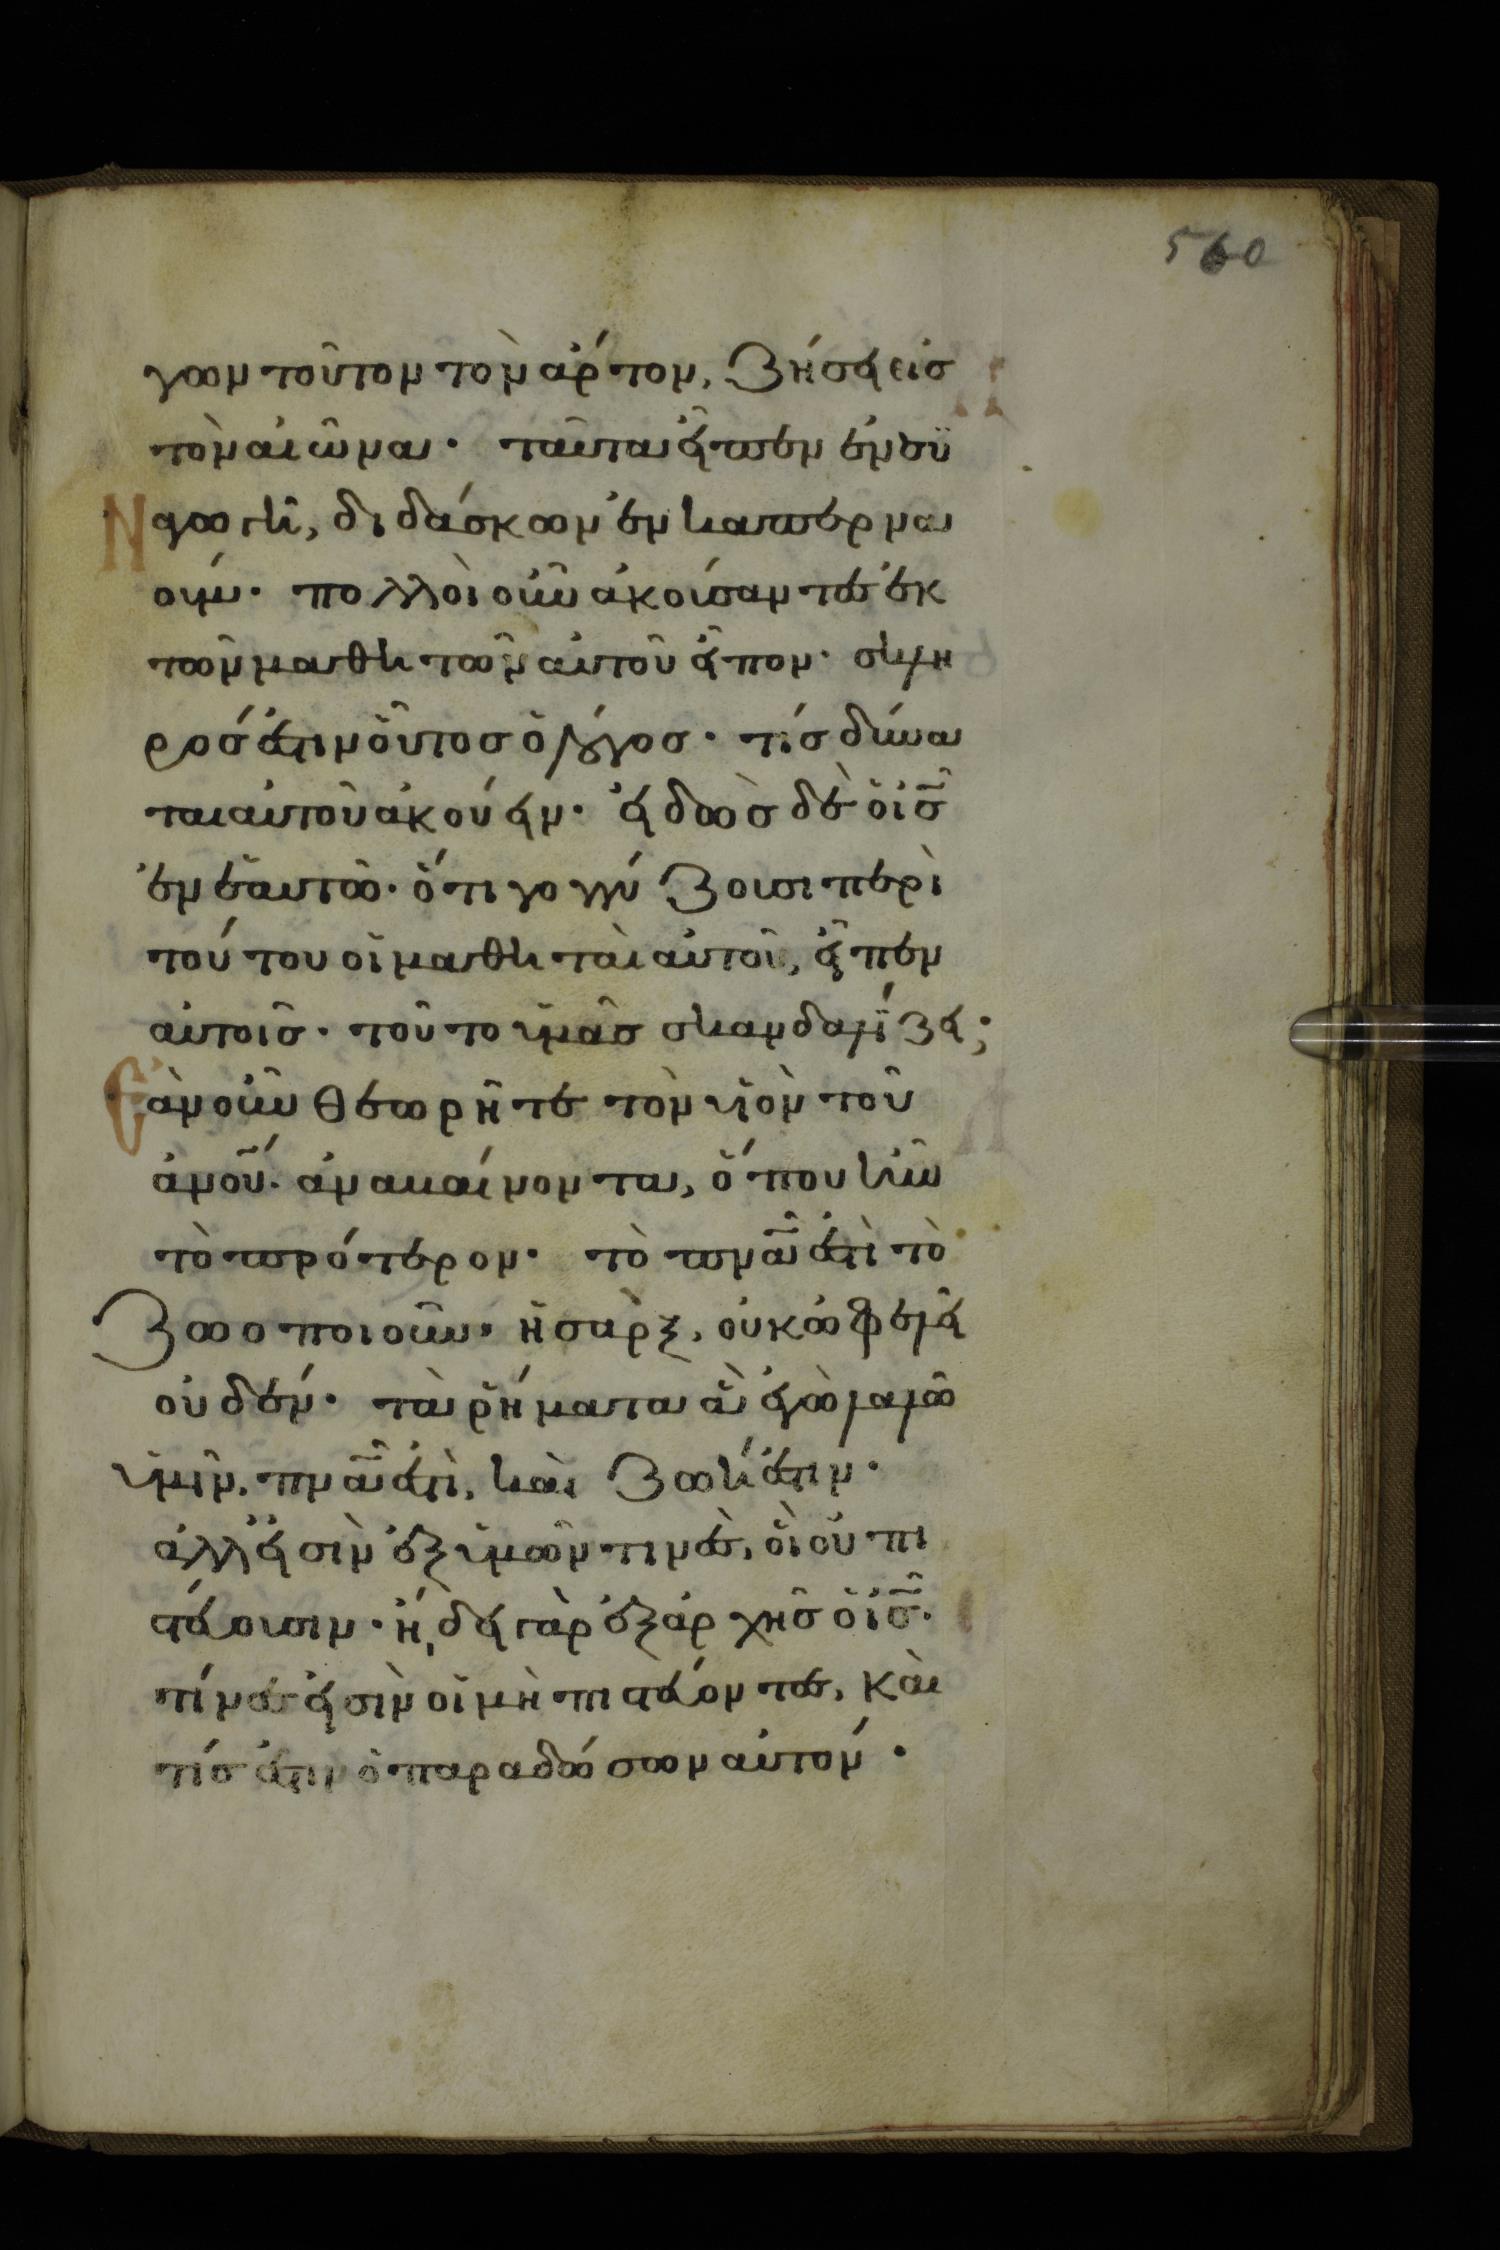 560
γων τοῦτον τὸν ἄρτον, ζήσει εἰσ
τὸν αἰῶνα· ταῦτα εἶπεν ἐν συ
ναγωγῆ, διδάσκων ἐν καπερνα
ούμ· πολλοὶ οὖν ἀκούσαντεσ ἐκ
τῶν μαθητῶν αὐτοῦ εἶπον· σκλη
ρόσ ἐστιν οὗτοσ ὁ λόγοσ· τίσ δύνα
ται αὐτοῦ ἀκούειν· εἰδὼσ δὲ ὁ ι̅σ̅
ἐν ἑαυτῶ· ὅτι γογγύζουσι περὶ
τούτου οἱ μαθηταὶ αὐτοῦ, εἶπεν
αὐτοῖσ· τοῦτο ὑμᾶσ σκανδαλίζει;
Εὰν οὖν θεωρῆτε τὸν υἱὸν τοῦ
α̅ν̅ο̅υ̅· ἀναβαίνοντα, ὅπου ἦν
τὸ πρότερον· τὸ π̅ν̅α̅ ἐστὶ τὸ
ζωοποιοῦν· ἡ σὰρξ, οὐκ ὠφελεῖ
οὐδέν· τὰ ῥήματα ἃ ἐγὼ λαλῶ
ὑμῖν, π̅ν̅α̅ ἐστὶ, καὶ ζωή ἐστιν·
ἀλλ εἰσὶν ἐξ ὑμῶν τινὲσ, οἳ οὐ πι
στεύουσιν· ἤδει γὰρ ἐξ ἀρχῆσ ὁ ι̅σ̅·
τίνεσ εἰσὶν οἱ μὴ πιστεύοντεσ, καὶ
τίσ ἐστιν ὁ παραδώσων αὐτόν·